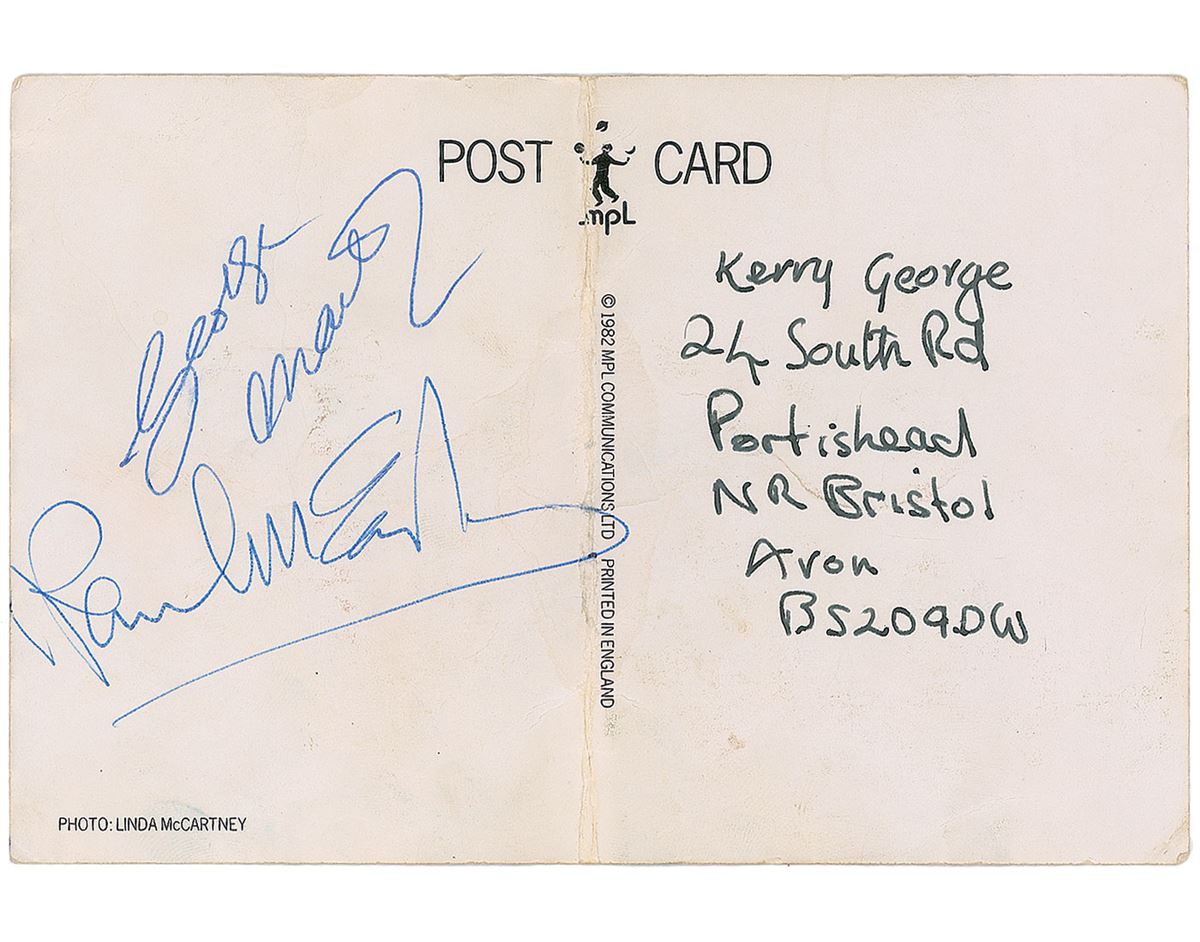 POST CARD
mpL
George
Martin
Paul McCartney
© 1982 MPL COMMUNICATIONS LTD PRINTED IN ENGLAND
Kerry George
24 South Rd
Portishead
NR Bristol
Avon
BS209DW
PHOTO: LINDA McCARTNEY